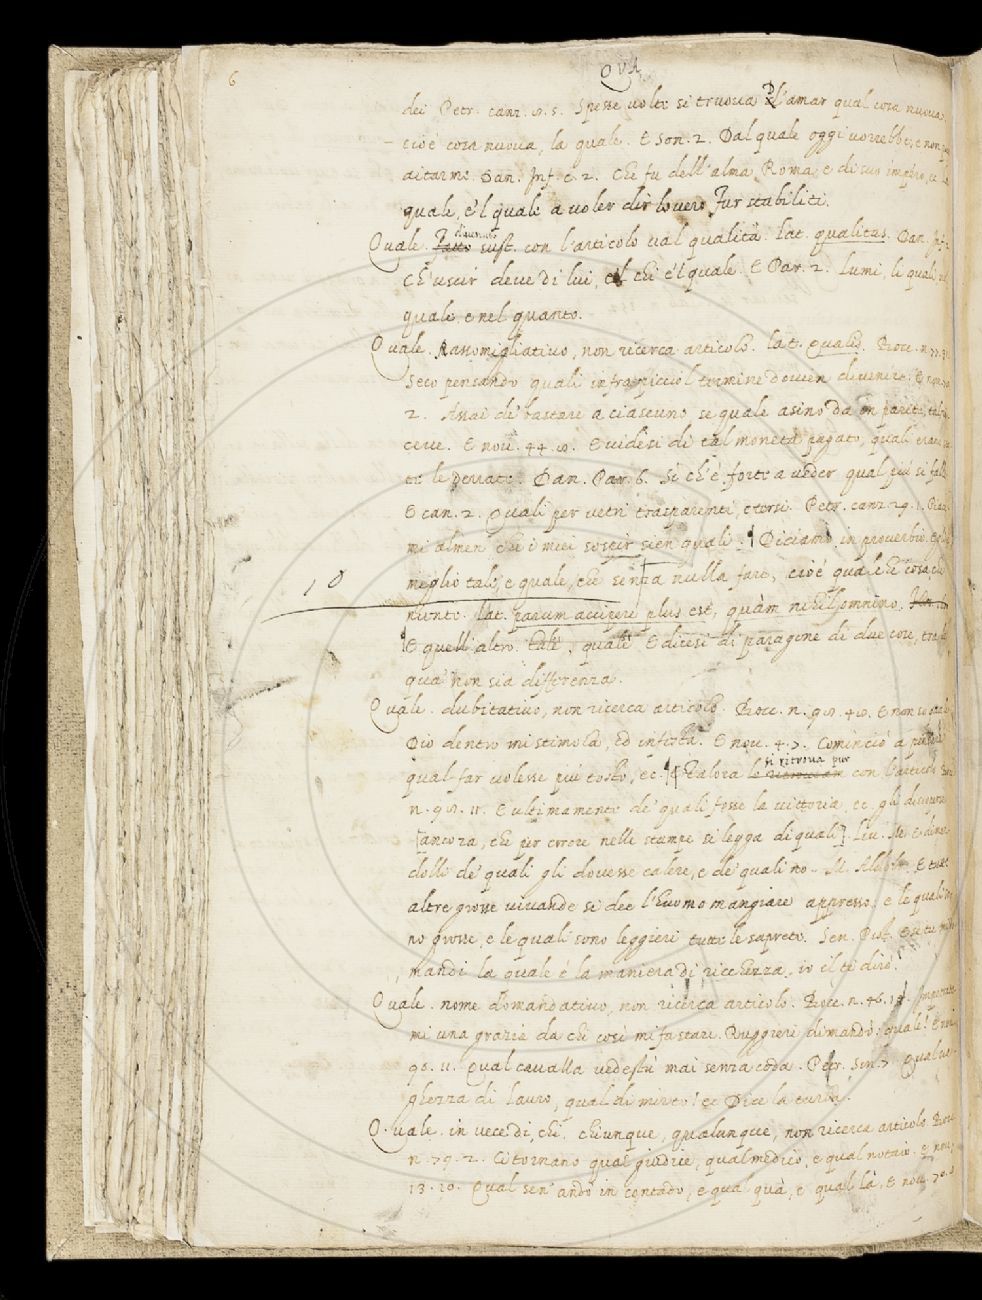 6
QVA
dei Petr. canz. 5. Spesse volte si truova l'amar qual cosa nuova.
cioè cosa nuova, la quale. E Son. 2. Dal quale oggi vorrebbe, e non può
aitarmi. Dan. Inf. c. 2. Che fu dell'alma Roma, e di suo impero, e la
quale, e'l quale a voler dir lo vero Fur stabiliti.
Quale. sust. con l'articolo val qualità. lat. qualitas. Dan. Inf.
Ch'uscir deve di lui, e'l chi e'l quale. E Par. 2. Lumi, li quali nel
quale, e nel quanto.
Quale. Rassomigliativo, non ricerca articolo. lat. qualis. Bocc. n. 77.
Seco pensando quali infra piccol termine dovean divenire. E
2. Assai di bastare a ciascuno se quale asino da in parete, tal
ceve. E nov. 44. Evidesi di tal moneta pagato, quali erano
te le derrate. Dan. Par. 6. Sì ch'è forte a veder qual più si falli
E can. 2. Quali per vetri trasparenti, e tersi. Petr. canz. 29. 1.
mi almen che i miei sospir sien quali. Diciamo in proverbio. Egli è
meglio tale, e quale, che senza nulla fare, cioè qualche cosa che
niente. lat. parum accipere plus est, quàm nihil omnino.
10
E quell'altro. tale, quale. E dicesi di paragone di due cose, tra le
qua' non sia differenza.
Quale. dubitativo, non ricerca articolo. Bocc. n. 98. 40. E non so quale
Dio dentro mi stimola, ed infesta. E nov. 4. 7. Cominciò a pensar
qual far volesse più tosto, ec. E talora si ritrova pur con l'articolo Bocc.
n. 98. 11. E ultimamente de' quali fosse la vittoria, ec. gli
[ancora, che per errore nelle stampe si legga di quali]. Liv. M.
dolli de' quali gli dovesse calere, e de' quali no. M. Aldobr. E tutte
altre grosse vivande si dee l'huomo mangiare appresso, e le quali
no grosse, e le quali sono leggieri tutte le sapreto. Sen. Pist. E se tu mi
mandi la quale è la maniera di ricchezza, io il te dirò.
Quale. nome domandativo, non ricerca articolo. Bocc. n. 46. Impetrate
mi una grazia da chi così mi fa stare. Ruggieri dimandò: quale? E nov.
90. 11. Qual cavalla vedestù mai senza coda. Petr. Son. 7. Qual va-
ghezza di lauro, qual di mirto? ec. Dice la turba.
Quale. in vece di, chi, chiunque, qualunque, non ricerca articolo. Bocc.
n. 79. 2. Ci tornano qual giudice, qual medico, e qual notaio. E nov.
13. 10. Qual sen'andò in contado, e qual quà, e qual là. E nov. 70.